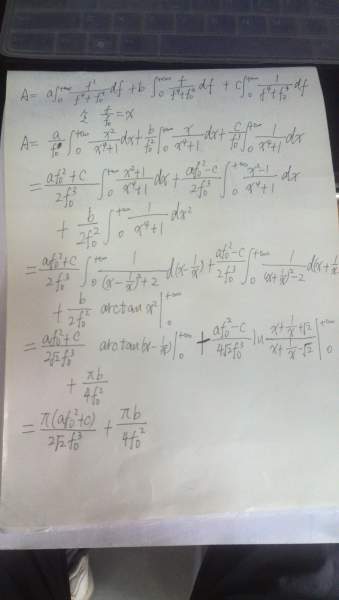 A = a∫₀^{+∞} f²/(f⁴+f₀⁴) df + b∫₀^{+∞} f/(f⁴+f₀⁴) df + c∫₀^{+∞} 1/(f⁴+f₀⁴) df
令 f/f₀ = x
A = a/f₀ ∫₀^{+∞} x²/(x⁴+1) dx + b/f₀² ∫₀^{+∞} x/(x⁴+1) dx + c/f₀³ ∫₀^{+∞} 1/(x⁴+1) dx
= (af₀²+c)/(2f₀³) ∫₀^{+∞} (x²+1)/(x⁴+1) dx + (af₀²-c)/(2f₀³) ∫₀^{+∞} (x²-1)/(x⁴+1) dx
+ b/(2f₀²) ∫₀^{+∞} 1/(x⁴+1) dx²
= (af₀²+c)/(2f₀³) ∫₀^{+∞} 1/((x-1/x)²+2) d(x-1/x) + (af₀²-c)/(2f₀³) ∫₀^{+∞} 1/((x+1/x)²-2) d(x+1/x
+ b/(2f₀²) arctan x² |₀^{+∞}
= (af₀²+c)/(2√2f₀³) arctan(x-1/x) |₀^{+∞} + (af₀²-c)/(4√2f₀³) ln (x+1/x+√2)/(x+1/x-√2) |₀^{+∞}
+ πb/(4f₀²)
= π(af₀²+c)/(2√2f₀³) + πb/(4f₀²)